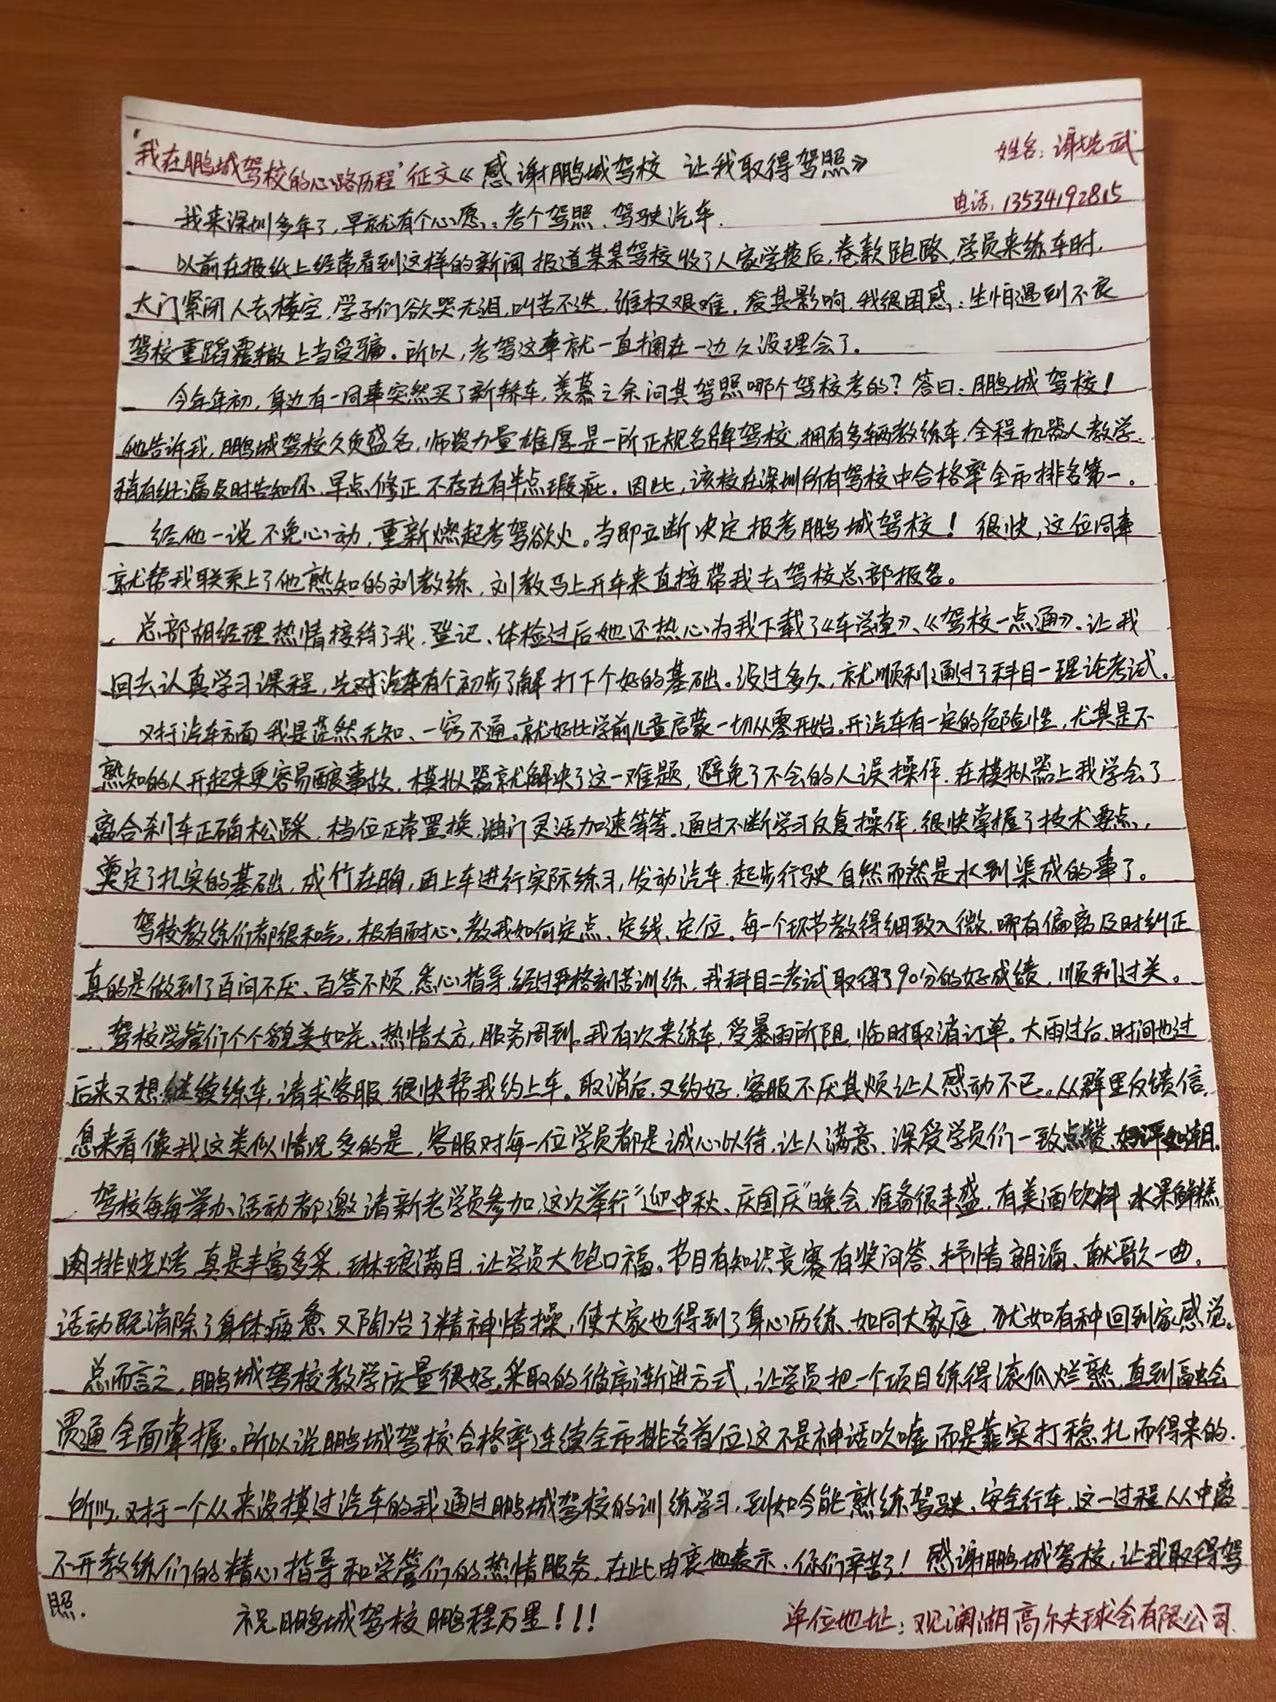 “我在鹏城驾校的心路历程”征文《感谢鹏城驾校 让我取得驾照》
姓名：谢先武
电话：13534192815
我来深圳多年了，早就有个心愿：考个驾照、驾驶汽车.
以前在报纸上经常看到这样的新闻 报道某某驾校收了人家学费后，卷款跑路，学员来练车时，
大门紧闭人去楼空，学子们欲哭无泪，叫苦不迭，维权艰难，受其影响，我很困惑：生怕遇到不良
驾校重蹈覆辙上当受骗。所以，考驾这事就一直搁在一边久没理会了。
今年年初，身边有一同事突然买了新轿车，羡慕之余问其驾照哪个驾校考的？答曰：鹏城驾校！
他告诉我，鹏城驾校久负盛名，师资力量雄厚是一所正规名牌驾校，拥有多辆教练车，全程机器人教学，
稍有纰漏及时告知你、早点修正 不存在有半点瑕疵。因此，该校在深圳所有驾校中合格率全市排名第一。
经他一说不免心动，重新燃起考驾欲火。当即立断决定报考鹏城驾校！很快，这位同事
就帮我联系上了他熟知的刘教练，刘教马上开车来直接带我去驾校总部报名。
总部胡经理热情接待了我，登记、体检过后她还热心为我下载了《车学堂》、《驾校一点通》，让我
回去认真学习课程，先对汽车有个初步了解 打下个好的基础。没过多久，就顺利通过了科目一理论考试。
对于汽车方面我是茫然无知、一窍不通。就好比学前儿童启蒙一切从零开始。开汽车有一定的危险性，尤其是不
熟知的人开起来更容易酿事故，模拟器就解决了这一难题，避免了不会的人误操作，在模拟器上我学会了
离合刹车正确松踩，档位正常置换，油门灵活加速等等。通过不断学习反复操作，很快掌握了技术要点，
奠定了扎实的基础，成竹在胸，再上车进行实际练习，发动汽车，起步行驶自然而然是水到渠成的事了。
驾校教练们都很和气，极有耐心，教我如何定点、定线、定位。每一个环节教得细致入微，哪有偏离及时纠正
真的是做到了百问不厌、百答不烦，悉心指导，经过严格刻苦训练，我科目二考试取得了90分的好成绩，顺利过关。
驾校学管们个个貌美如花、热情大方，服务周到。我有次来练车，受暴雨所阻，临时取消订单。大雨过后，时间也过
后来又想继续练车，请求客服，很快帮我约上车。取消后，又约好，客服不厌其烦让人感动不已。从群里反馈信
息来看像我这类似情况多的是，客服对每一位学员都是诚心以待，让人满意、深受学员们一致点赞、好评如潮。
驾校每每举办活动都邀请新老学员参加，这次举行“迎中秋、庆国庆”晚会，准备很丰盛，有美酒饮料 水果鲜糕
肉排烧烤，真是丰富多采，琳琅满目，让学员大饱口福。节目有知识竞赛有奖问答、抒情朗诵、献歌一曲。
活动既消除了身体疲惫，又陶冶了精神情操，使大家也得到了身心历练，如同大家庭，犹如有种回到家感觉。
总而言之，鹏城驾校教学质量很好，采取的循序渐进方式，让学员把一个项目练得滚瓜烂熟，直到融会
贯通全面掌握。所以说鹏城驾校合格率连续全市排名首位这不是神话吹嘘而是靠实打稳扎而得来的.
所以，对于一个从来没摸过汽车的我通过鹏城驾校的训练学习，到如今能熟练驾驶、安全行车，这一过程从中离
不开教练们的精心指导和学管们的热情服务，在此由衷地表示：你们辛苦了！感谢鹏城驾校，让我取得驾
照.
祝鹏城驾校鹏程万里！！！
单位地址：观澜湖高尔夫球会有限公司.